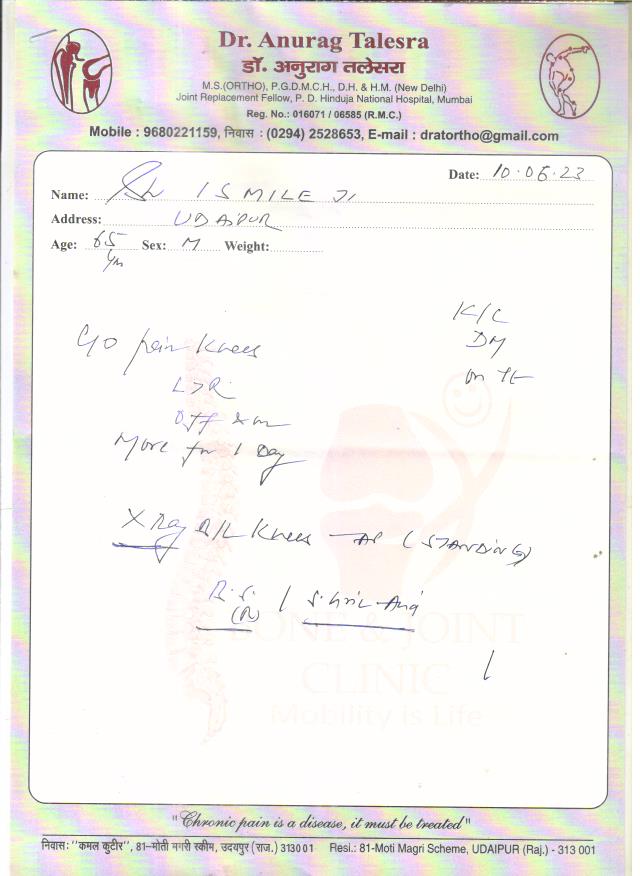 Dr. Anurag Talesra
डॉ. अनुराग तलेसरा
M.S.(ORTHO), P.G.D.M.C.H., D.H. & H.M. (New Delhi)
Joint Replacement Fellow, P. D. Hinduja National Hospital, Mumbai
Reg. No.: 016071 / 06585 (R.M.C.)
Mobile : 9680221159, निवास : (0294) 2528653, E-mail : dratortho@gmail.com
Date: 10.06.23
Name: Sh ISMILE JI
Address: UDAIPUR
Age: 65 Sex: M Weight:
K/C
DM
on
C/O pain Knees
L>R
More for 1 Day
X Ray B/L Knees - AP (STANDING)
B.S. (R) / S. Uric Acid
BONE & JOINT
CLINIC
Mobility is Life
"Chronic pain is a disease, it must be treated"
निवास: "कमल कुटीर", 81-मोती मगरी स्कीम, उदयपुर (राज.) 313001 Resi.: 81-Moti Magri Scheme, UDAIPUR (Raj.) - 313 001